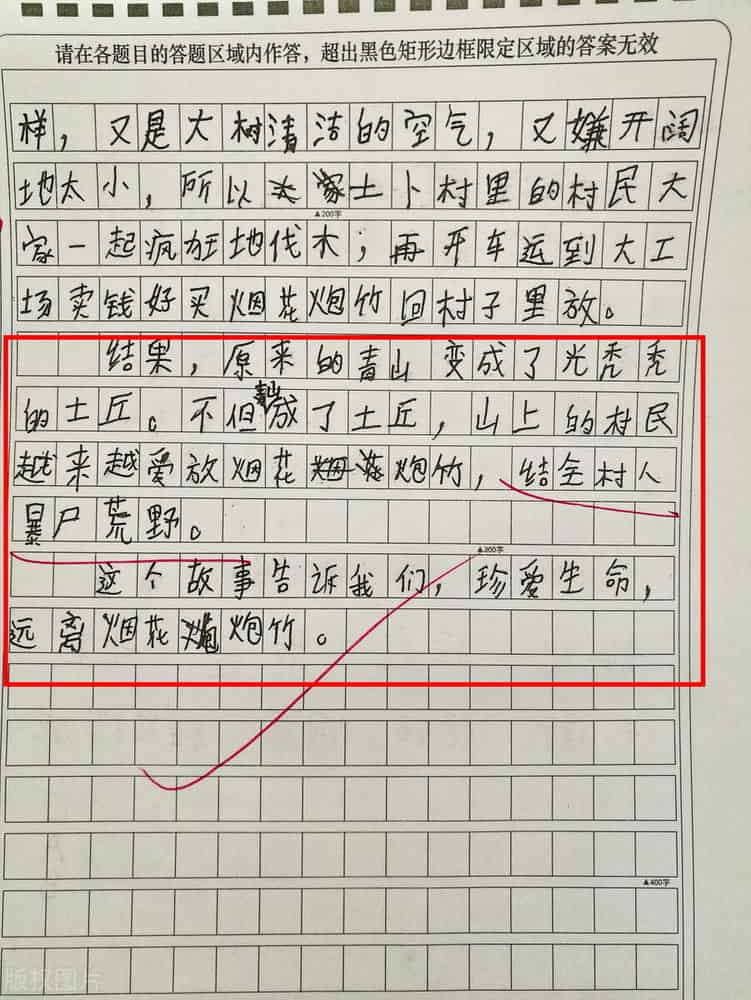 请在各题目的答题区域内作答，超出黑色矩形边框限定区域的答案无效
样，又是大树清洁的空气，又嫌开阔
地太小，所以家土卜村里的村民大
▲200字
家一起疯狂地伐木；再开车运到大工
场卖钱好买烟花炮竹回村子里放。
结果，原来的青山变成了光秃秃
的土丘。不但青山成了土丘，山上的村民
越来越爱放烟花炮竹，结全村人
暴尸荒野。
▲300字
这个故事告诉我们，珍爱生命，
远离烟花炮竹。
▲400字
版权图片